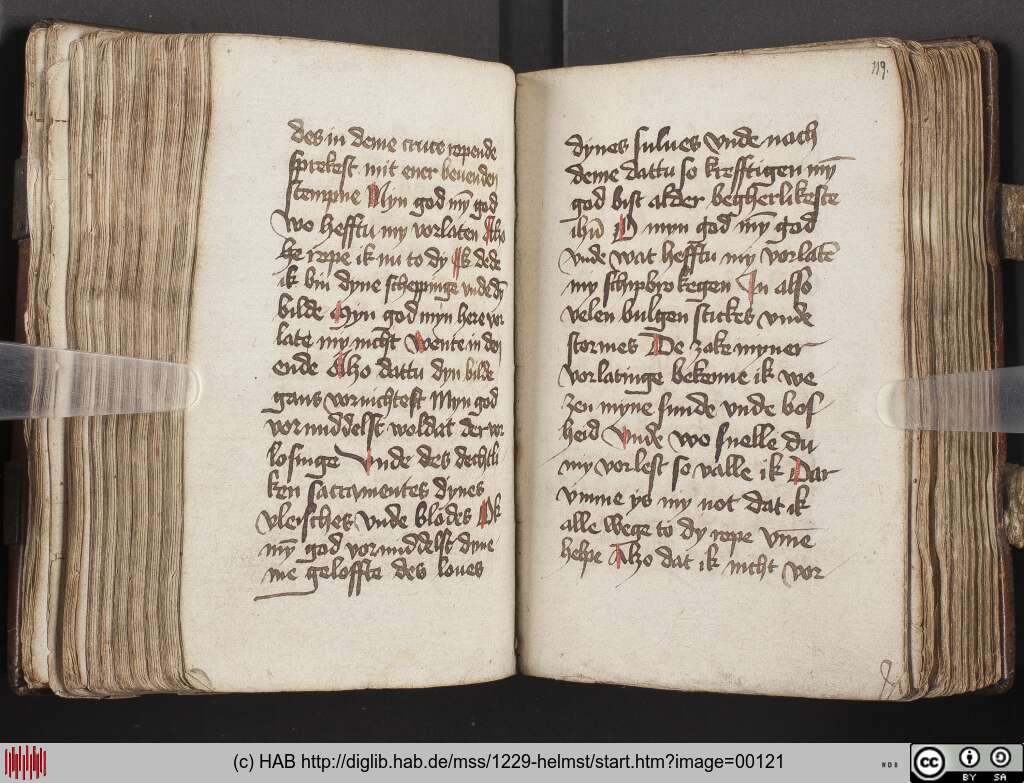 des in deme cruce ropende
sprekest mit ener beuenden
stempne Myn god my̅ god
wo hefftu my vorlaten Also
he rope ik nu to dy Ik dede
ik bin dyne scheppinge vnde dy̅
bilde Myn god myn here vor
late my nicht Wente in den
ende Also dattu dyn bilde
gans vornichtest Myn god
vormiddelst woldat der vor
losinge Vnde des dechtli
ken sacramentes dynes
vleisches vnde blodes Ok
my̅ god vormiddelst dyne
me geloffte des loues
119.
dynes sulues Vnde nach
deme dattu so krefftigen my̅
god bist alder begherlikeste
ihu̅ O myn god my̅ god
vnde wat hefftu my vorlate̅
my schipbrokegen In also
velen bulgen stickes vnde
stormes De zake myner
vorlatinge bekenne ik we
zen myne sunde vnde bos
heid Vnde wo snelle du
my vorlest so valle ik Dar
vmme ys my not dat ik
alle wege to dy rope vm̅e
helpe Also dat ik nicht vor
(c) HAB http://diglib.hab.de/mss/1229-helmst/start.htm?image=00121
WDB
cc BY SA